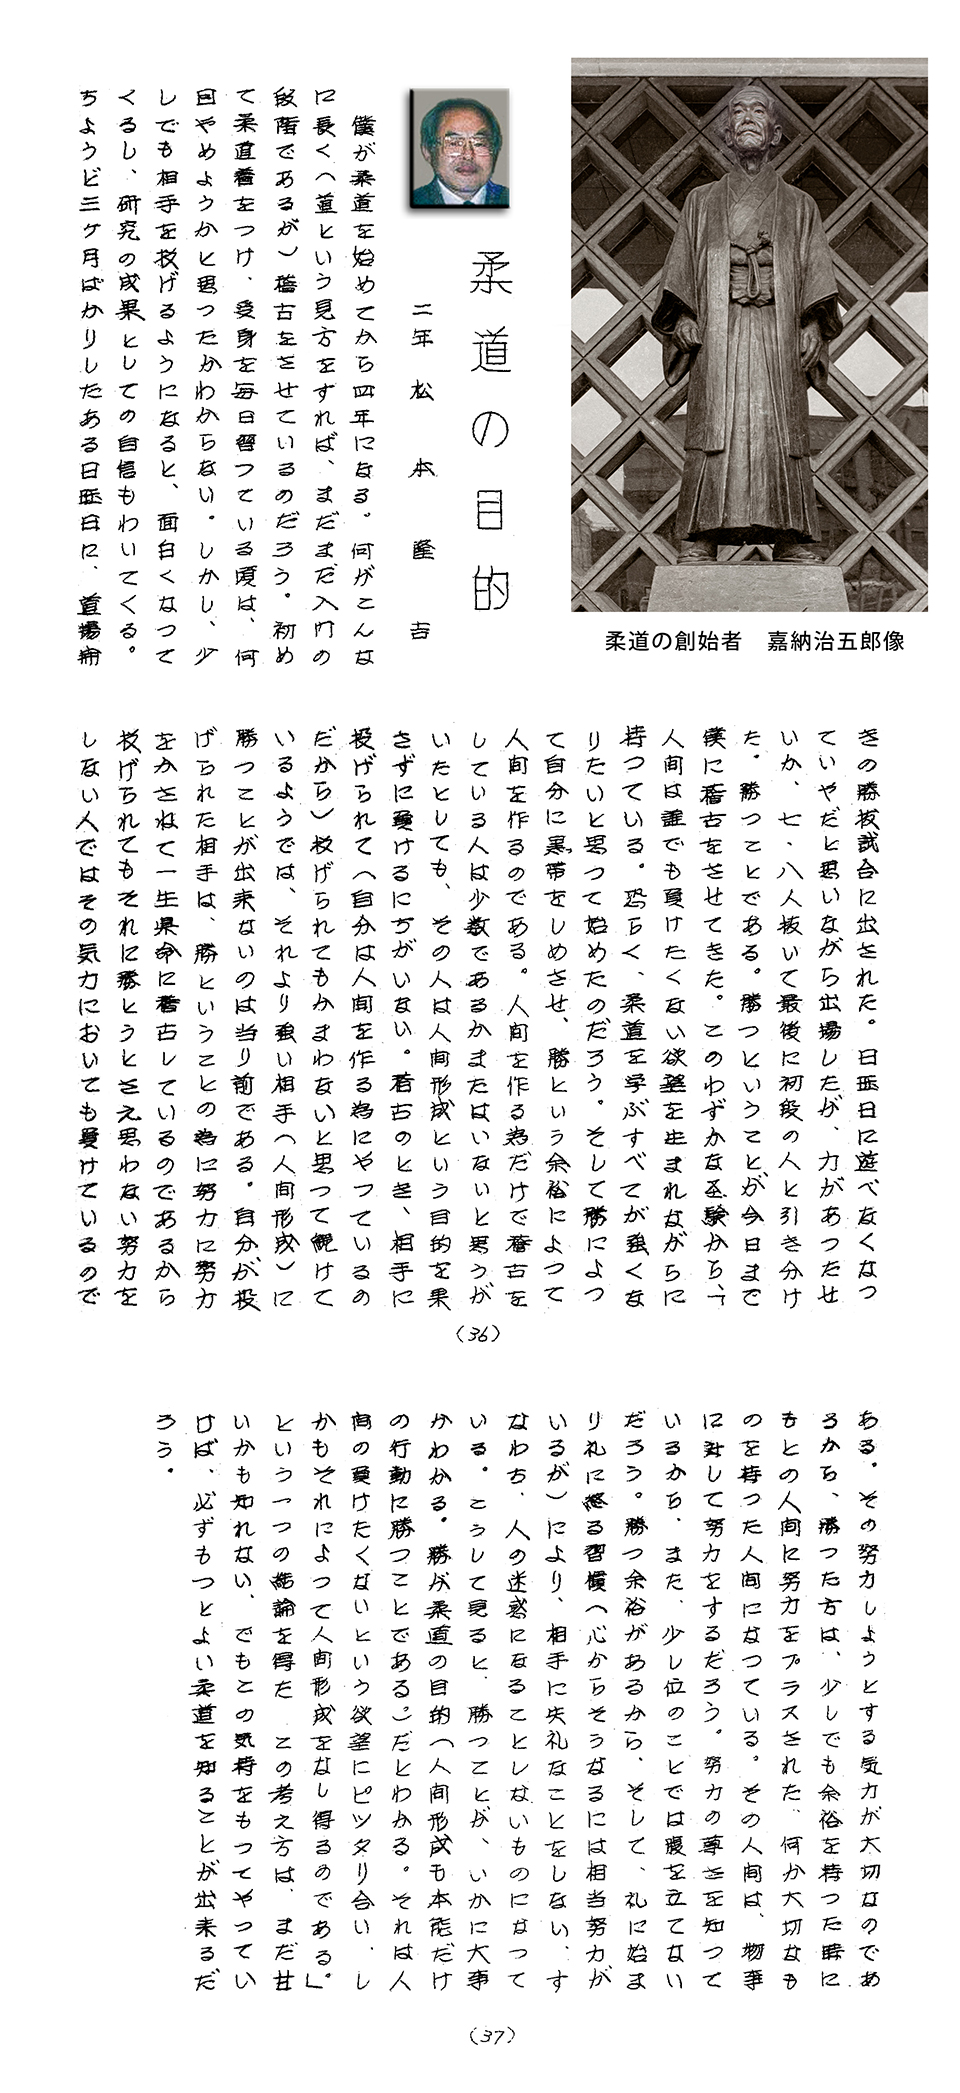 柔道の創始者　嘉納治五郎像
柔道の目的
二年　松本隆吉
僕が柔道を始めてから四年になる。何がこんな
に長く（道という見方をすれば、まだまだ入門の
段階であるが）稽古をさせているのだろう。初め
て柔道着をつけ、受身を毎日習つている頃は、何
回やめようかと思つたかわからない。しかし、少
しでも相手を投げるようになると、面白くなつて
くるし、研究の成果としての自信もわいてくる。
ちようど三ケ月ばかりしたある日曜日に、道場
きの勝抜試合に出された。日曜日に遊べなくなつ
ていやだと思いながら出場したが、力があつたせ
いか、七・八人抜いて最後に初段の人と引き分け
た。勝つことである。勝つということが今日まで
僕に稽古をさせてきた。このわずかな経験から、「
人間は誰でも負けたくない欲望を生まれながらに
持つている。恐らく、柔道を学ぶすべてが強くな
りたいと思つて始めたのだろう。そして勝によつ
て自分に黒帯をしめさせ、勝という余裕によつて
人間を作るのである。人間を作る為だけで稽古を
している人は少数であるかまたはいないと思うが
いたとしても、その人は人間形成という目的を果
さずに負けるにちがいない。稽古のとき、相手に
投げられて（自分は人間を作る為にやつているの
だから）投げられてもかまわないと思つて続けて
いるようでは、それより強い相手（人間形成）に
勝つことが出来ないのは当り前である。自分が投
げられた相手は、勝ということの為に努力に努力
をかさねて一生県命に稽古しているのであるから
投げられてもそれに勝とうとさえ思わない努力を
しない人ではその気力においても負けているので
（36）
ある。その努力しようとする気力が大切なのであ
るから、勝つた方は、少しでも余裕を持つた時に
もとの人間に努力をプラスされた、何か大切なも
のを持つた人間になつている。その人間は、物事
に対して努力をするだろう。努力の尊さを知つて
いるから、また、少し位のことでは腹を立てない
だろう。勝つ余裕があるから、そして、礼に始ま
り礼に終る習慣（心からそうなるには相当努力が
いるが）により、相手に失礼なことをしない、す
なわち、人の迷惑になることしないものになつて
いる。こうして見ると、勝つことが、いかに大事
かわかる。勝が柔道の目的（人間形成も本能だけ
の行動に勝つことである。）だとわかる。それは人
間の負けたくないという欲望にピツタリ合い、し
かもそれによつて人間形成をなし得るのである」。
という一つの結論を得た　この考え方は、まだ甘
いかも知れない、でもこの気持をもつてやつてい
けば、必ずもつとよい柔道を知ることが出来るだ
ろう。
（37）